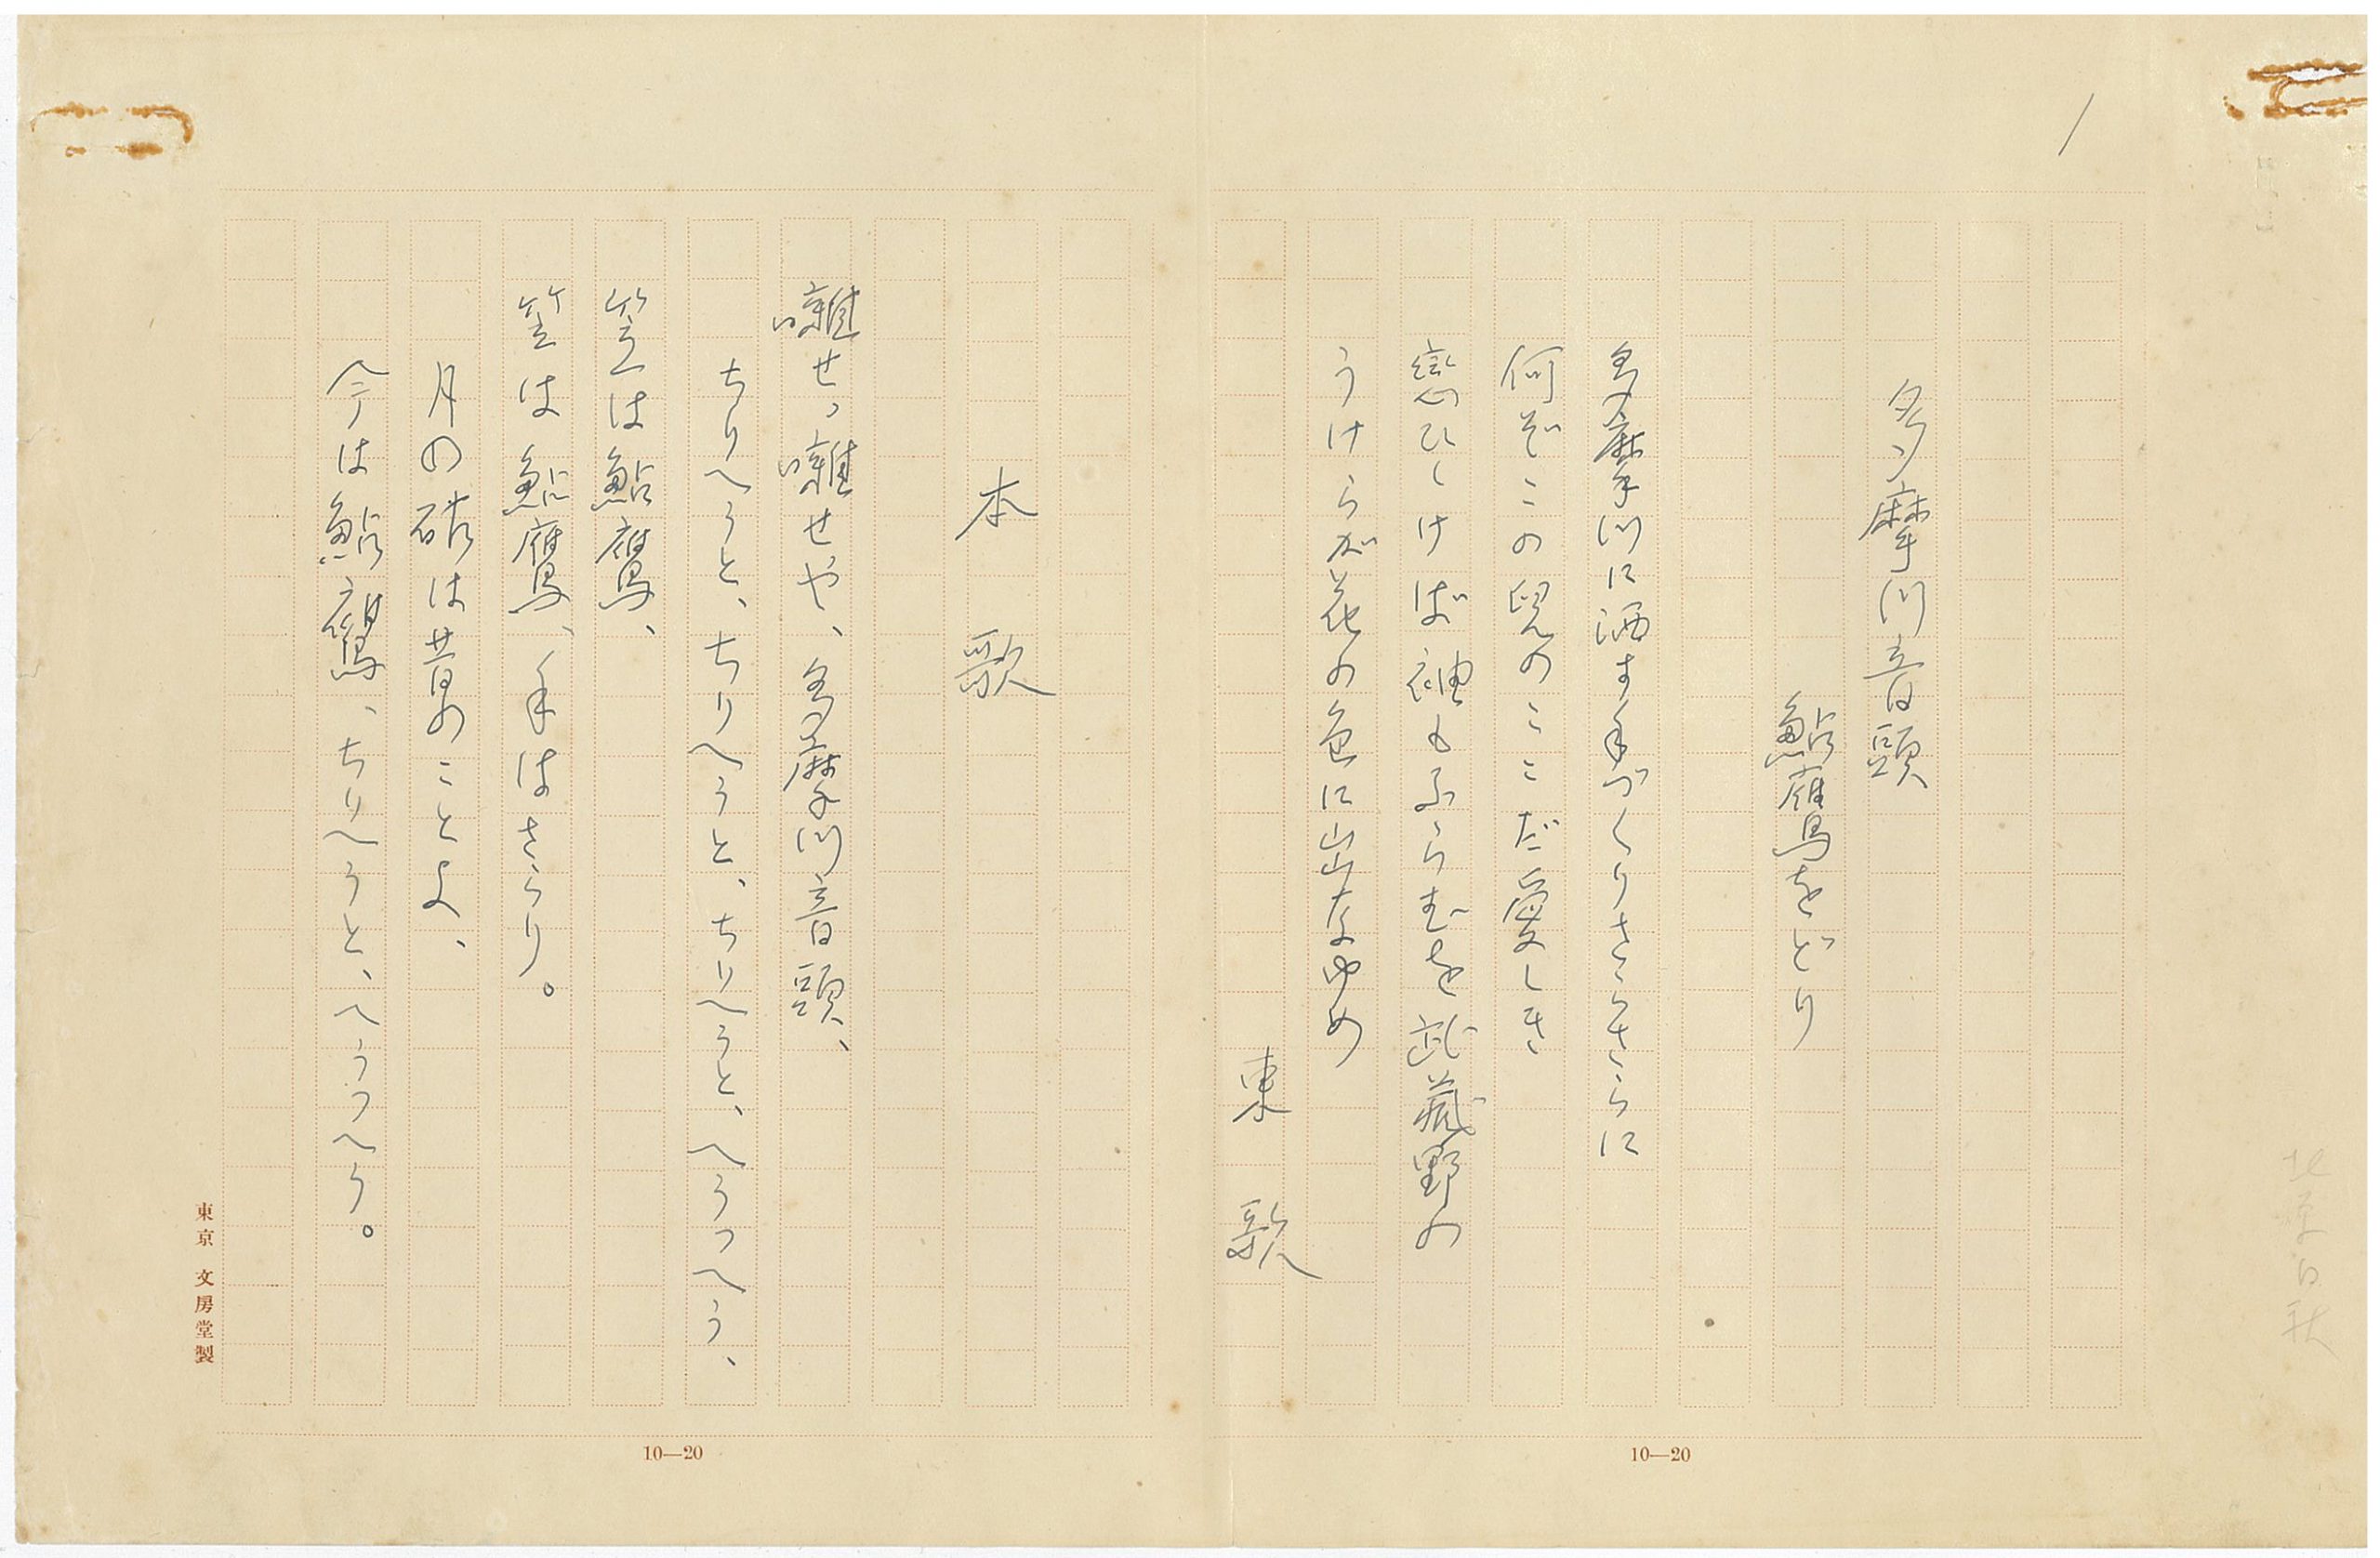 1
北原白秋
多摩川音頭
鮎鷹をどり
多摩川に洒す手づくりさらさらに
何ぞこの兒のここだ愛しき
戀ひしけば袖もふらむを武藏野の
うけらが花の色に出なゆめ
東歌
10―20
本歌
囃せっ囃せや、多摩川音頭、
ちりへうと、ちりへうと、ちりへうと、へうつへう、
笠は鮎鷹、
笠は鮎鷹、手はさらり。
月の砧は昔のことよ、
今は鮎鷹、ちりへうと、へうつへう。
東京 文房堂製
10―20